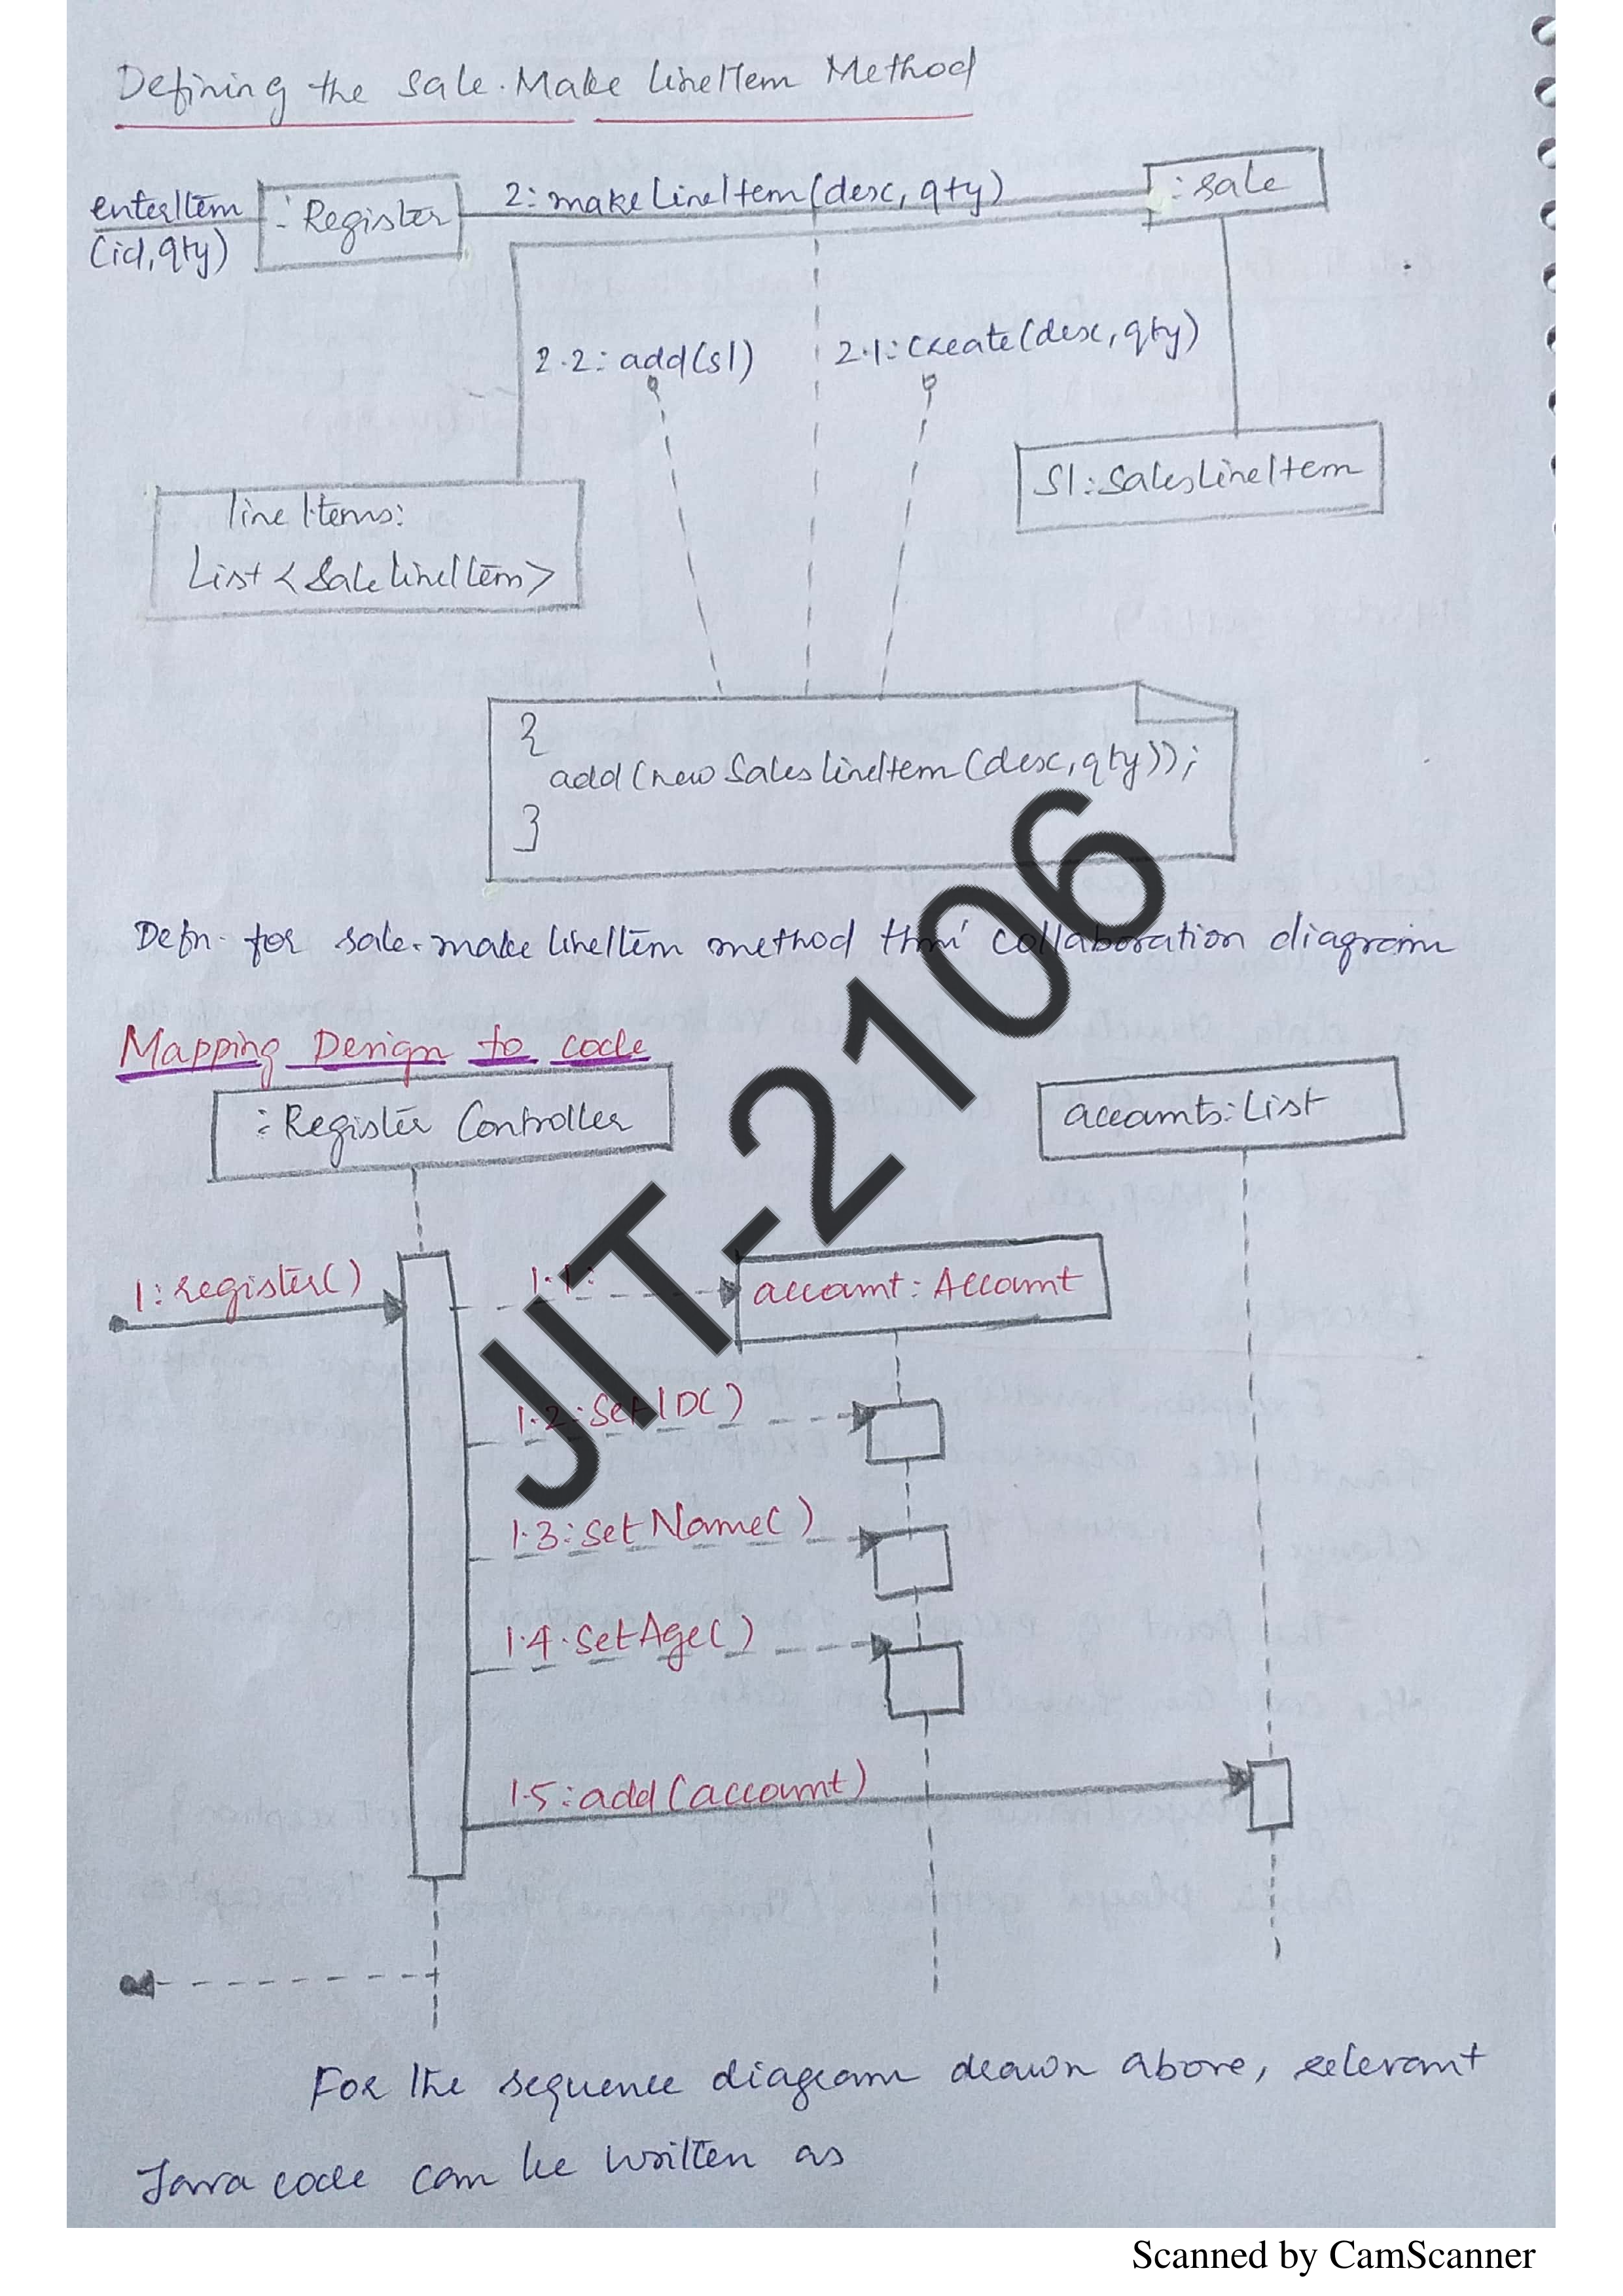 Defining the Sale.Make lineItem Method
enterItem
(id, qty)
: Register
2: makeLineItem(desc, qty)
: sale
2.2: add(sl)
2.1: create(desc, qty)
lineItems:
List <SaleLineItem>
Sl: SalesLineItem
{
add(new SaleslineItem(desc, qty));
}
Defn. for sale.make lineItem method thru' collaboration diagram
Mapping Design to code
: Register Controller
accounts: List
1: register()
1.1:
account: Account
1.2: Set ID()
1.3: Set Name()
1.4. SetAge()
1.5: add (account)
For the sequence diagram drawn above, relevant
Java code can be written as
JIT-2106
Scanned by CamScanner